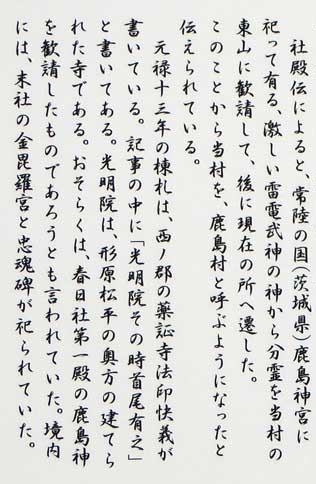 社殿伝によると、常陸の国(茨城県)鹿島神宮に
祀って有る、激しい雷電武神の神から分霊を当村の
東山に勧請して、後に現在の所へ遷した。
このことから当村を、鹿島村と呼ぶようになったと
伝えられている。
元禄十三年の棟札は、西ノ郡の薬証寺法印快義が
書いている。記事の中に「光明院その時首尾有之」
と書いてある。光明院は、形原松平の奥方の建てら
れた寺である。おそらくは、春日社第一殿の鹿島神
を勧請したものであろうとも言われていた。境内
には、末社の金毘羅宮と忠魂碑が祀られていた。